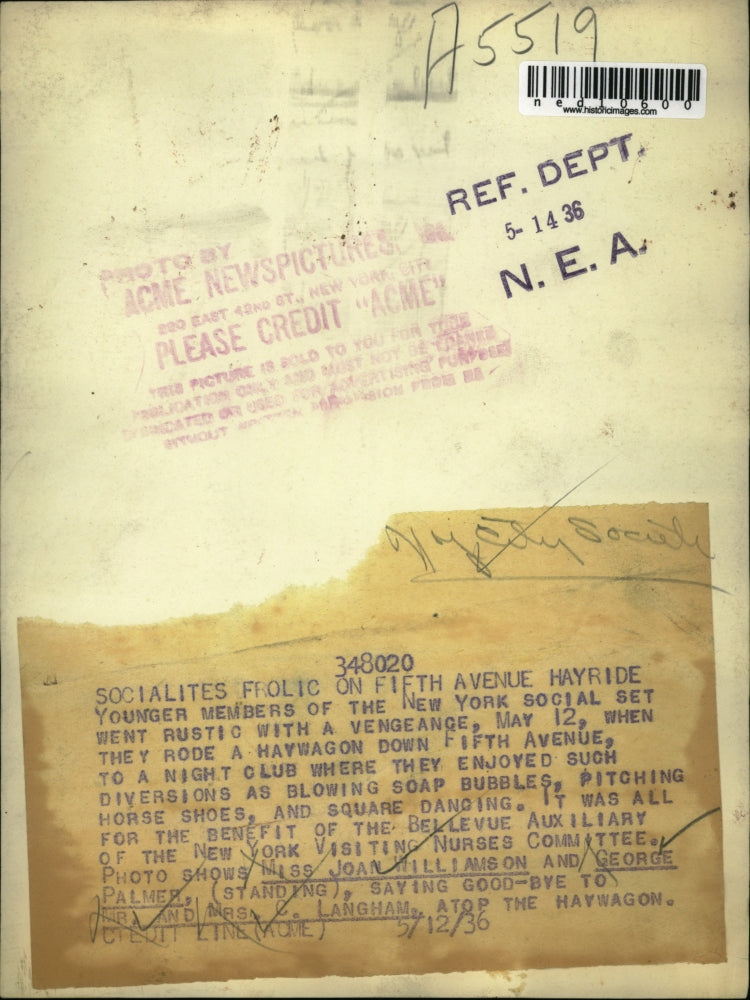 A5519
ned10600
www.historicimages.com
REF. DEPT.
5-14 36
N. E. A.
PHOTO BY
ACME NEWSPICTURES, Inc.
220 EAST 42ND ST., NEW YORK CITY
PLEASE CREDIT "ACME"
THIS PICTURE IS SOLD TO YOU FOR YOUR
PUBLICATION ONLY AND MUST NOT BE LOANED
SYNDICATED OR USED FOR ADVERTISING PURPOSES
WITHOUT WRITTEN PERMISSION FROM US
348020
SOCIALITES FROLIC ON FIFTH AVENUE HAYRIDE
YOUNGER MEMBERS OF THE NEW YORK SOCIAL SET
WENT RUSTIC WITH A VENGEANCE, MAY 12, WHEN
THEY RODE A HAYWAGON DOWN FIFTH AVENUE,
TO A NIGHT CLUB WHERE THEY ENJOYED SUCH
DIVERSIONS AS BLOWING SOAP BUBBLES, PITCHING
HORSE SHOES, AND SQUARE DANCING. IT WAS ALL
FOR THE BENEFIT OF THE BELLEVUE AUXILIARY
OF THE NEW YORK VISITING NURSES COMMITTEE.
PHOTO SHOWS MISS JOAN WILLIAMSON AND GEORGE
PALMER, (STANDING), SAYING GOOD-BYE TO
MR. AND MRS. C. LANGHAM, ATOP THE HAYWAGON.
CREDIT LINE (ACME) 5/12/36